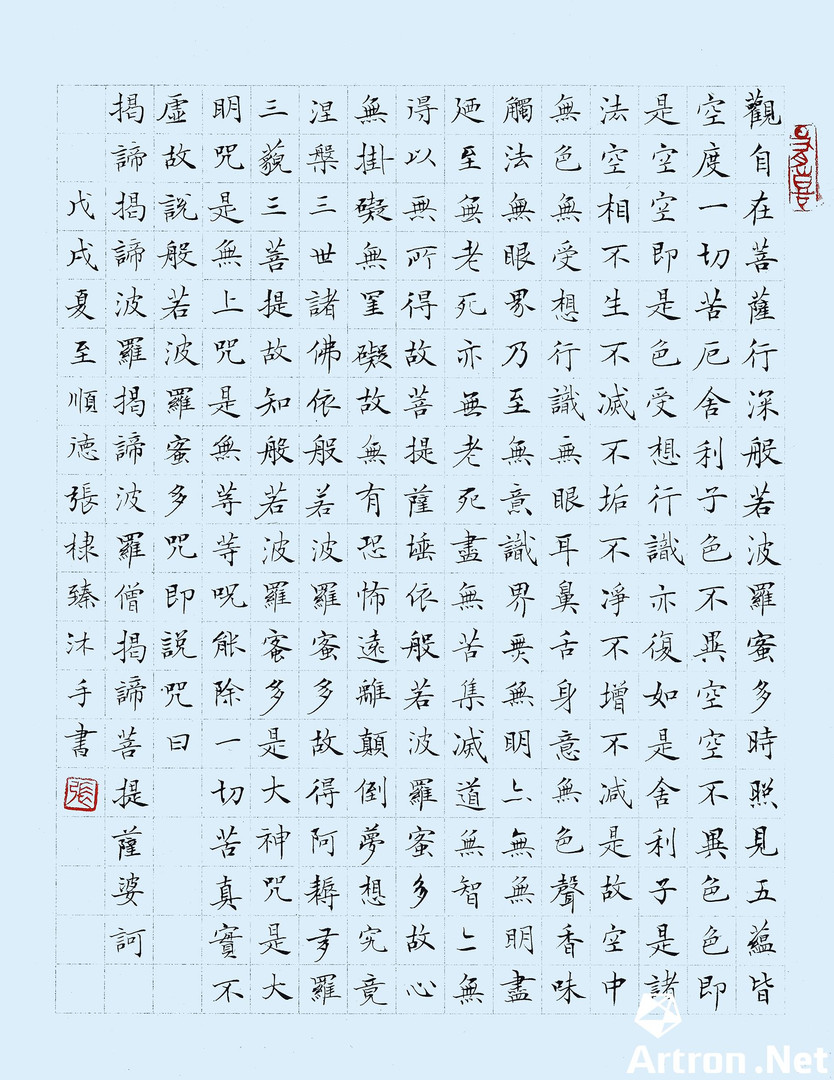 觀自在菩薩行深般若波羅蜜多時照見五蘊皆
空度一切苦厄舍利子色不異空空不異色色即
是空空即是色受想行識亦復如是舍利子是諸
法空相不生不滅不垢不淨不增不減是故空中
無色無受想行識無眼耳鼻舌身意無色聲香味
觸法無眼界乃至無意識界無無明亦無無明盡
廼至無老死亦無老死盡無苦集滅道無智亦無
得以無所得故菩提薩埵依般若波羅蜜多故心
無掛礙無罣礙故無有恐怖遠離顛倒夢想究竟
涅槃三世諸佛依般若波羅蜜多故得阿耨多羅
三藐三菩提故知般若波羅蜜多是大神咒是大
明咒是無上咒是無等等呪能除一切苦真實不
虛故說般若波羅蜜多咒即說咒曰
揭諦揭諦波羅揭諦波羅僧揭諦菩提薩婆訶
戊戌夏至順德張棣臻沐手書
張
Artron.Net